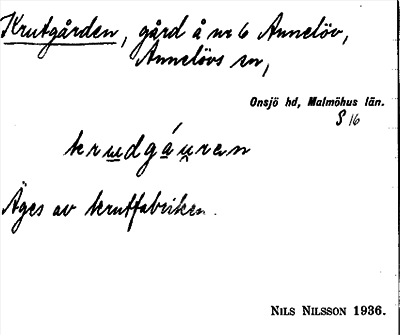 Krutgården, gård å nr 6 Annelöv,
Annelövs sn,
Onsjö hd, Malmöhus län.
§ 16
krudgáuren
Äges av krutfabriken.
NILS NILSSON 1936.